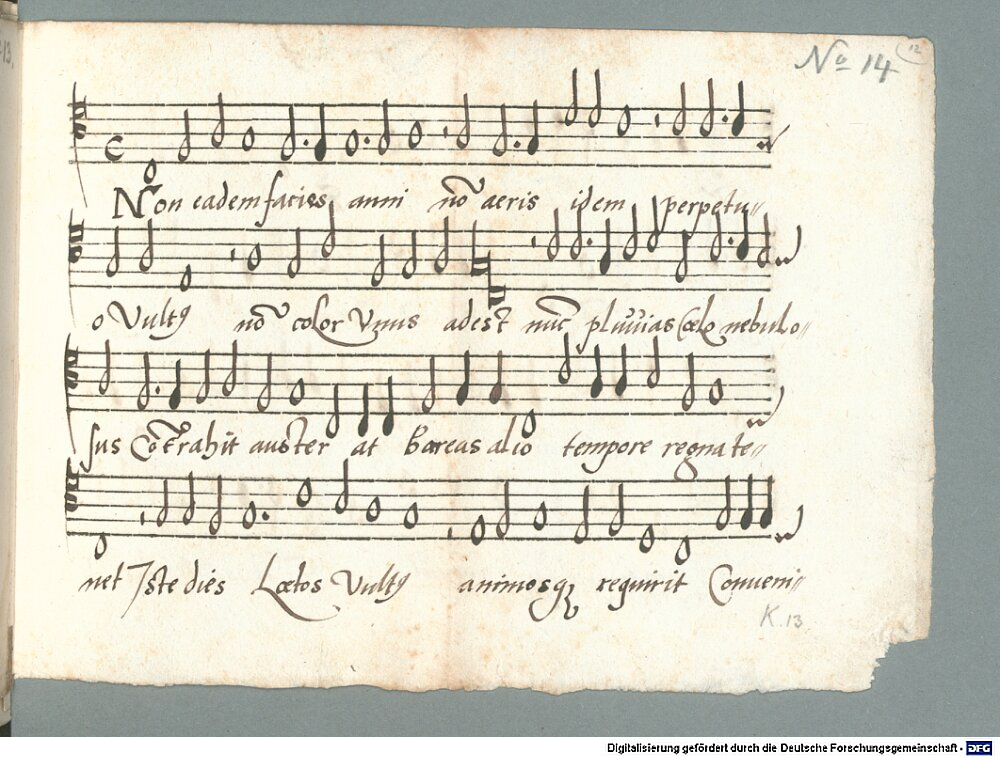 13.
12
No 14
Non eadem facies anni nō aeris idem perpetu〃
o Vultꝰ nō color Vnus adest nūc pluuias Cœlo nebulo〃
sus Cōtrahit auster at boreas alio tempore regna te〃
net Iste dies Lœtos Vultꝰ animosqꝫ requirit Conueni〃
K. 13
Digitalisierung gefördert durch die Deutsche Forschungsgemeinschaft - DFG